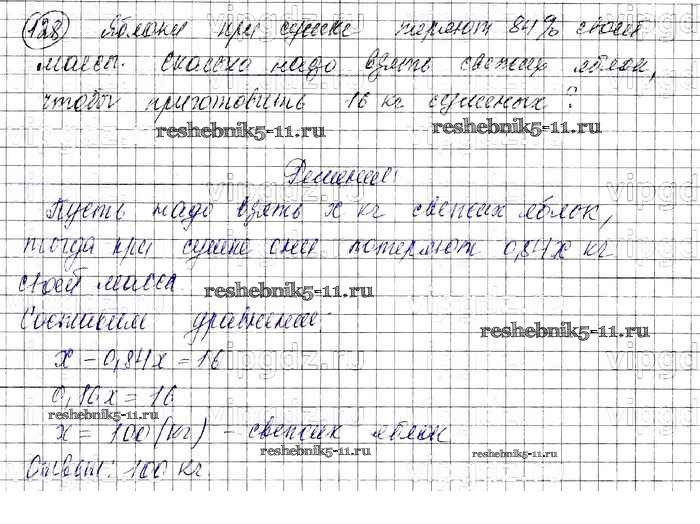 128 Яблоки при сушке теряют 84% своей
массы. Сколько надо взять свежих яблок,
чтобы приготовить 16 кг сушеных?
reshebnik5-11.ru reshebnik5-11.ru
Решение:
Пусть надо взять x кг свежих яблок,
тогда при сушке они потеряют 0,84x кг
своей массы.
reshebnik5-11.ru
Составим уравнение:
reshebnik5-11.ru
x - 0,84x = 16
vipgdz.ru
0,16x = 16
reshebnik5-11.ru
x = 100 (кг) - свежих яблок
reshebnik5-11.ru reshebnik5-11.ru
Ответ: 100 кг.